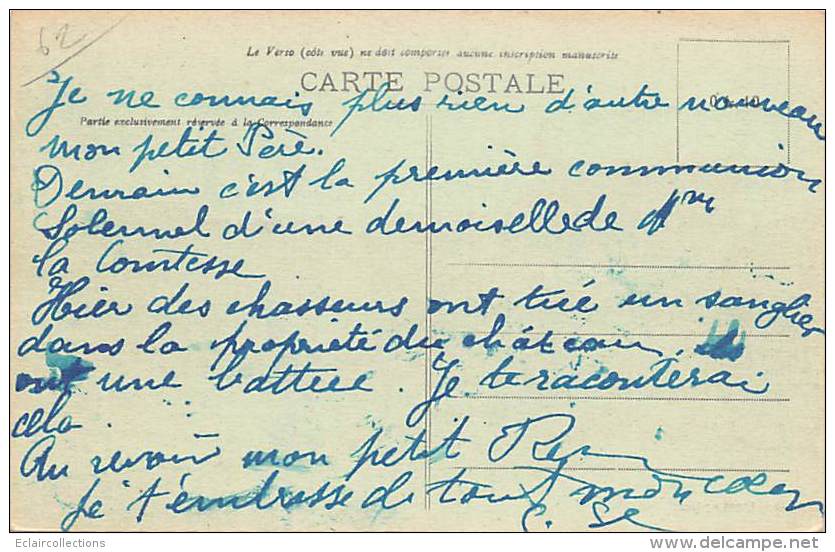 62
Le Verso (côté vue) ne doit comporter aucune inscription manuscrite
CARTE POSTALE
Je ne connais plus rien d'autre nouveau
Partie exclusivement réservée à la Correspondance
mon petit Père.
Demain c'est la première communion
Solennel d'une demoiselle de Mme
la Comtesse
Hier des chasseurs ont tué un sanglier
dans la propriété du château,
ont une battue. Je te raconterai
cela
Au revoir mon petit
Je t'embrasse de tout mon cœur
Eclaircollections
www.delcampe.net